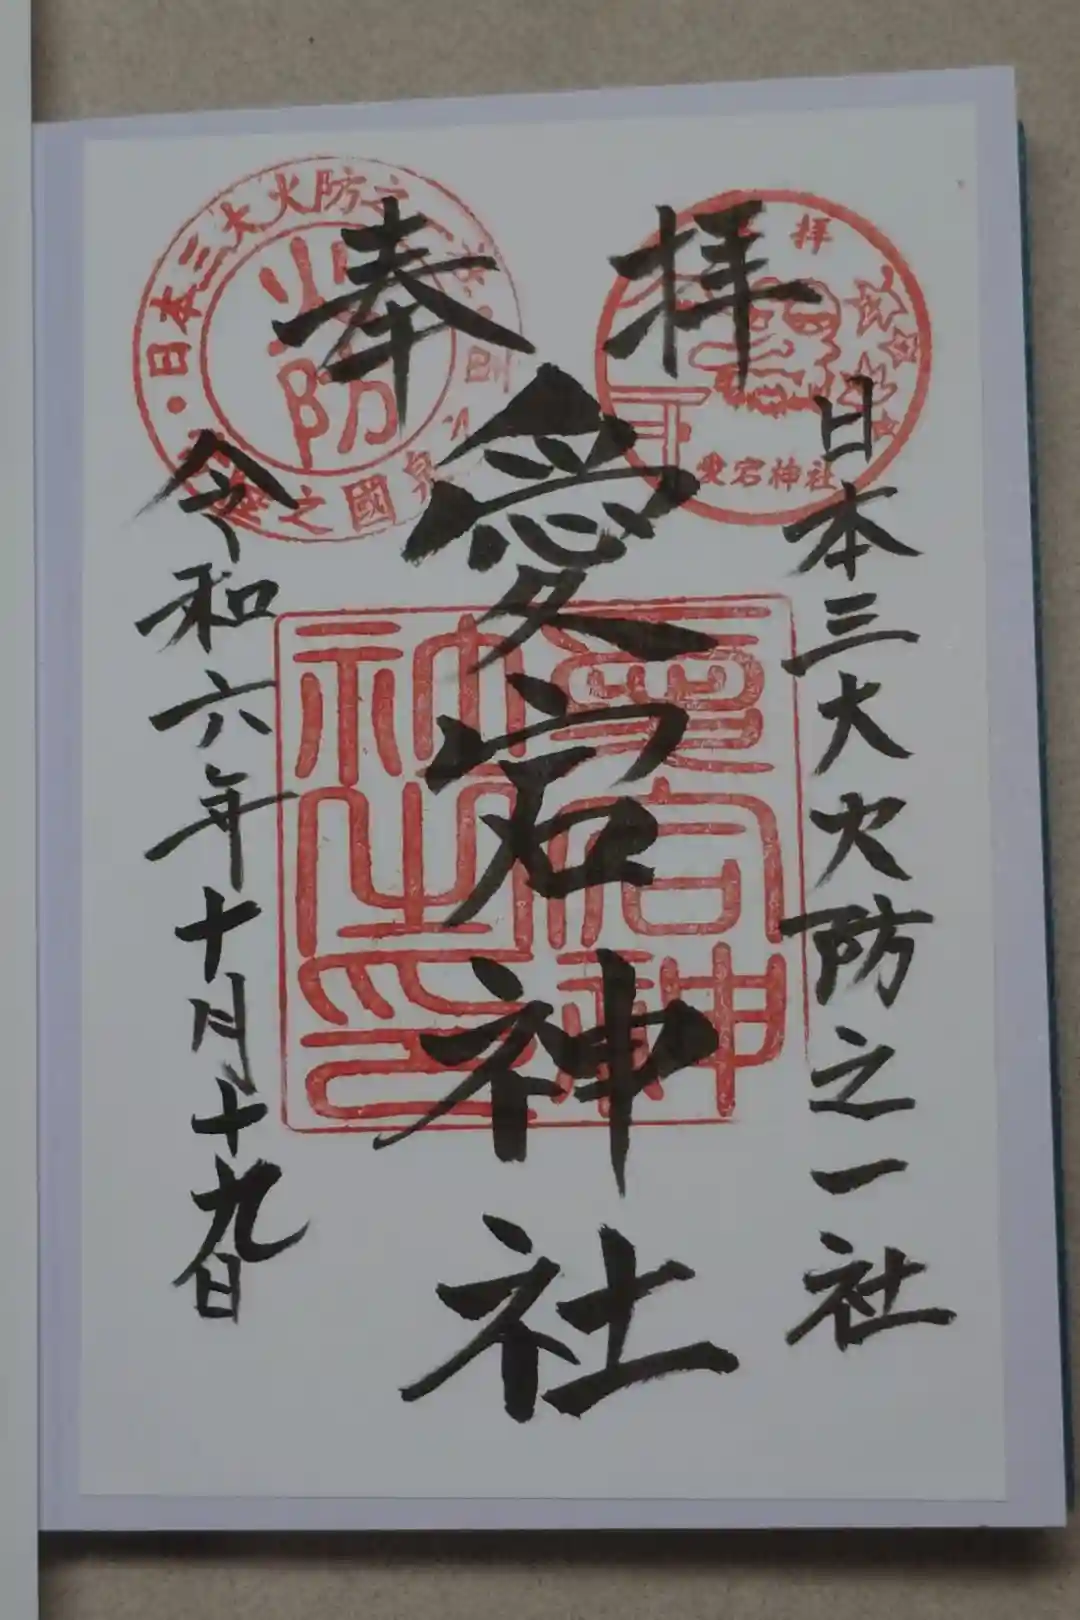 奉拝
日本三大火防之一社
愛宕神社
令和六年十月十九日
日本三大火防之一
火防
國之
拝
愛宕神社
愛宕神社之印